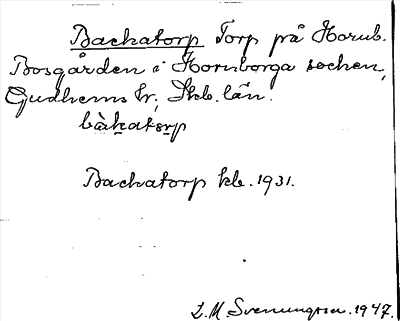 Backatorp Torp på Hornb.
Bosgården i Hornborga socken,
Gudhems hr, Skb. län.
bàkatorp
Backatorp kb. 1931.
L. M. Svenungsson. 1947.